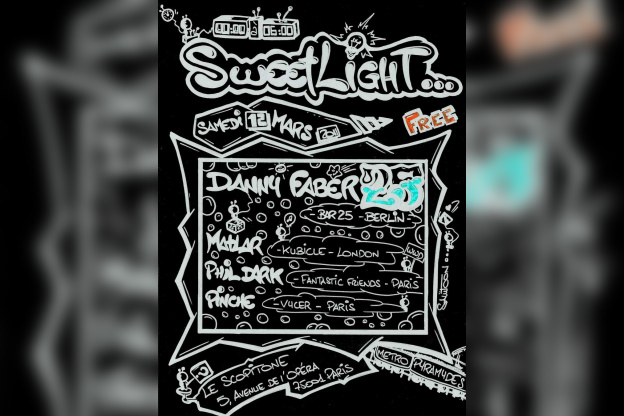 SWEETLIGHT...
SAMEDI 12 MARS 2011
FREE
DANNY FABER
- BAR 25 - BERLIN -
MATLAR
- KUBICLE - LONDON
PHIL DARK
- FANTASTIC FRIENDS - PARIS
PINCHE
- V4CER - PARIS
LE SCOPITONE
5, AVENUE DE L'OPÉRA
75001 PARIS
METRO PYRAMYDES